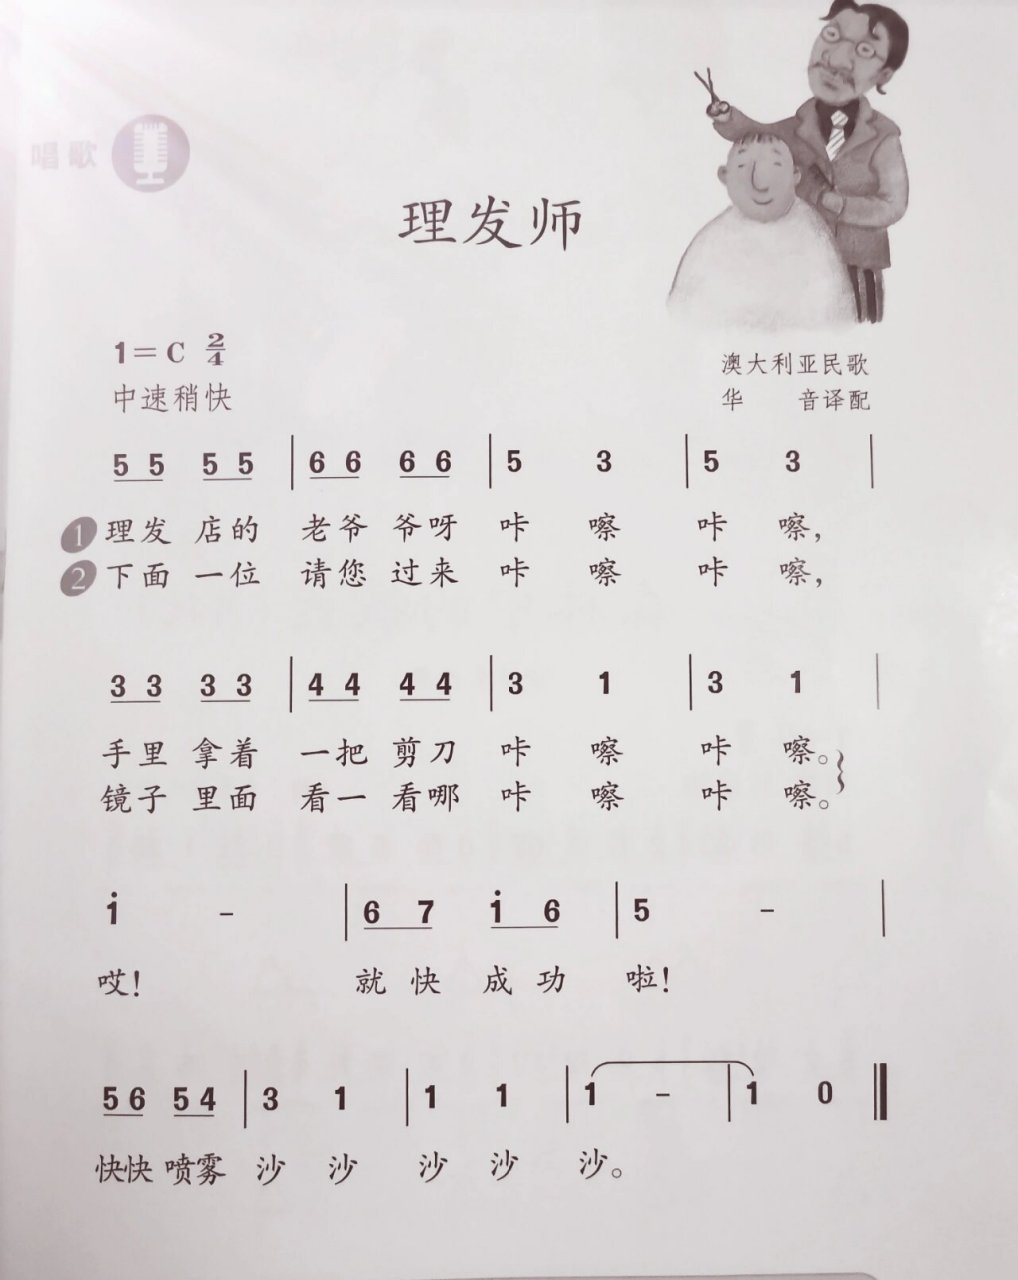 唱歌
理发师
1=C 2/4
澳大利亚民歌
中速稍快
华 音译配
5 5 5 5 | 6 6 6 6 | 5 3 | 5 3 |
1 理发 店的 老爷 爷呀 咔 嚓 咔 嚓,
2 下面 一位 请您 过来 咔 嚓 咔 嚓,
3 3 3 3 | 4 4 4 4 | 3 1 | 3 1 |
手里 拿着 一把 剪刀 咔 嚓 咔 嚓。
镜子 里面 看一 看哪 咔 嚓 咔 嚓。
i – | 6 7 i 6 | 5 – |
哎! 就快 成功 啦!
5 6 5 4 | 3 1 | 1 1 | 1 – | 1 0
快快 喷雾 沙 沙 沙 沙 沙。